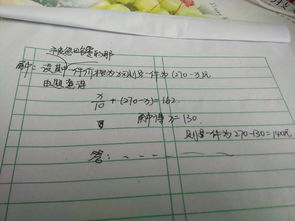 解:设其中一件价格为x元则另一件为(270-x)元
由题意得
x/10+(270-x)=162
解得x=130
则另一件为270-130=140元
答:----